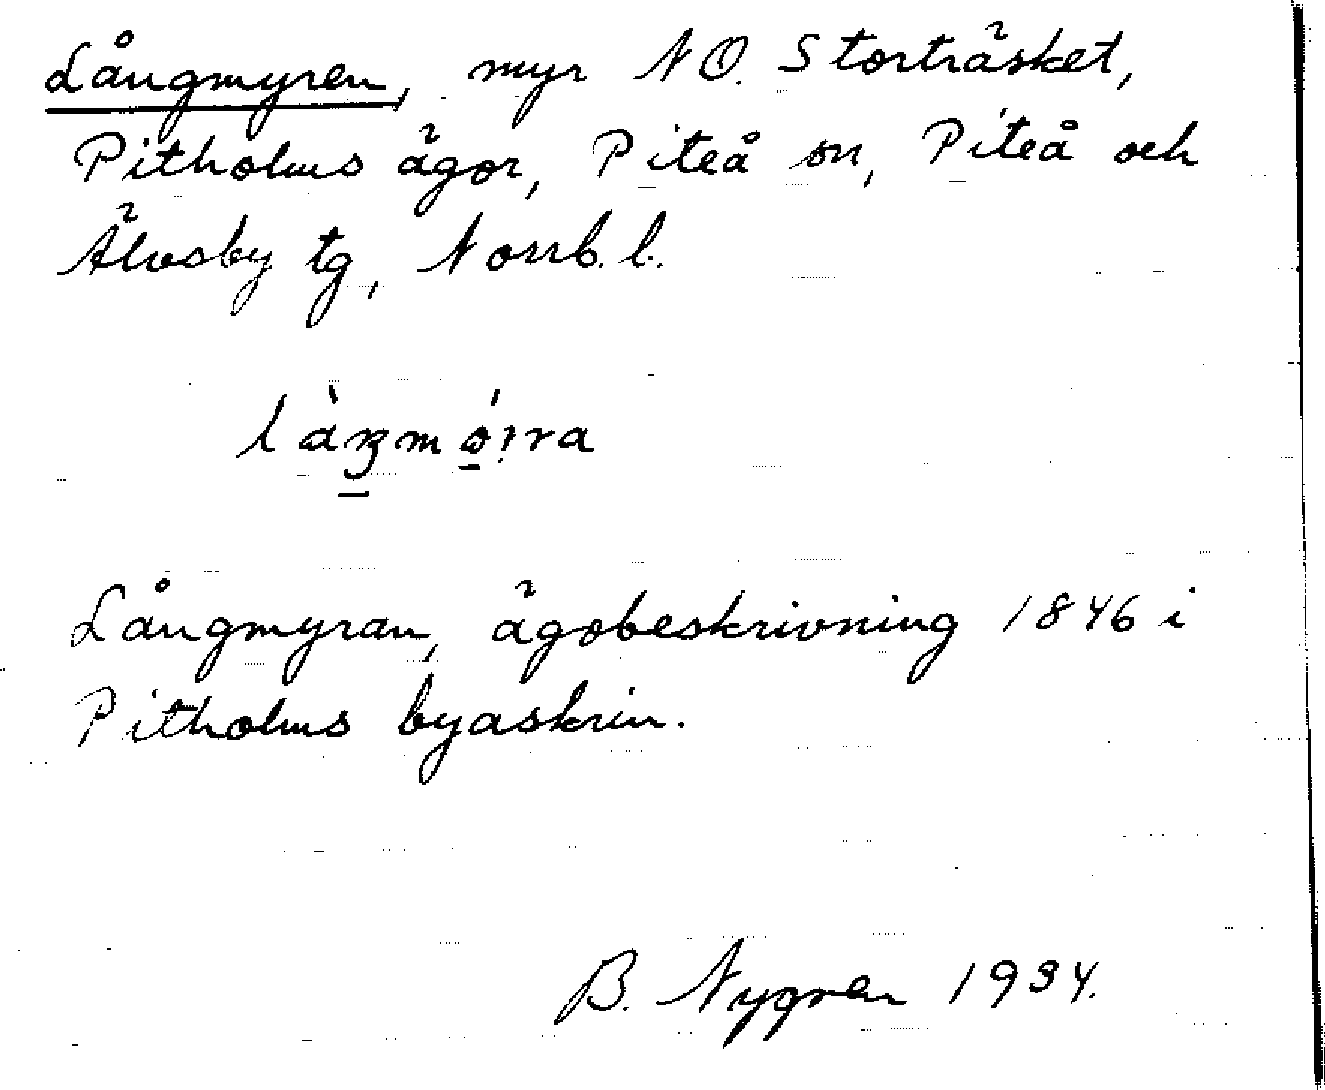 Långmyren, myr NO. Storträsket,
Pitholms ägor, Piteå sn, Piteå och
Älvsby tg, Norrb. l.
Långmyran, ägobeskrivning 1846 i
Pitholms byaskrin.
B. Nygren 1934.